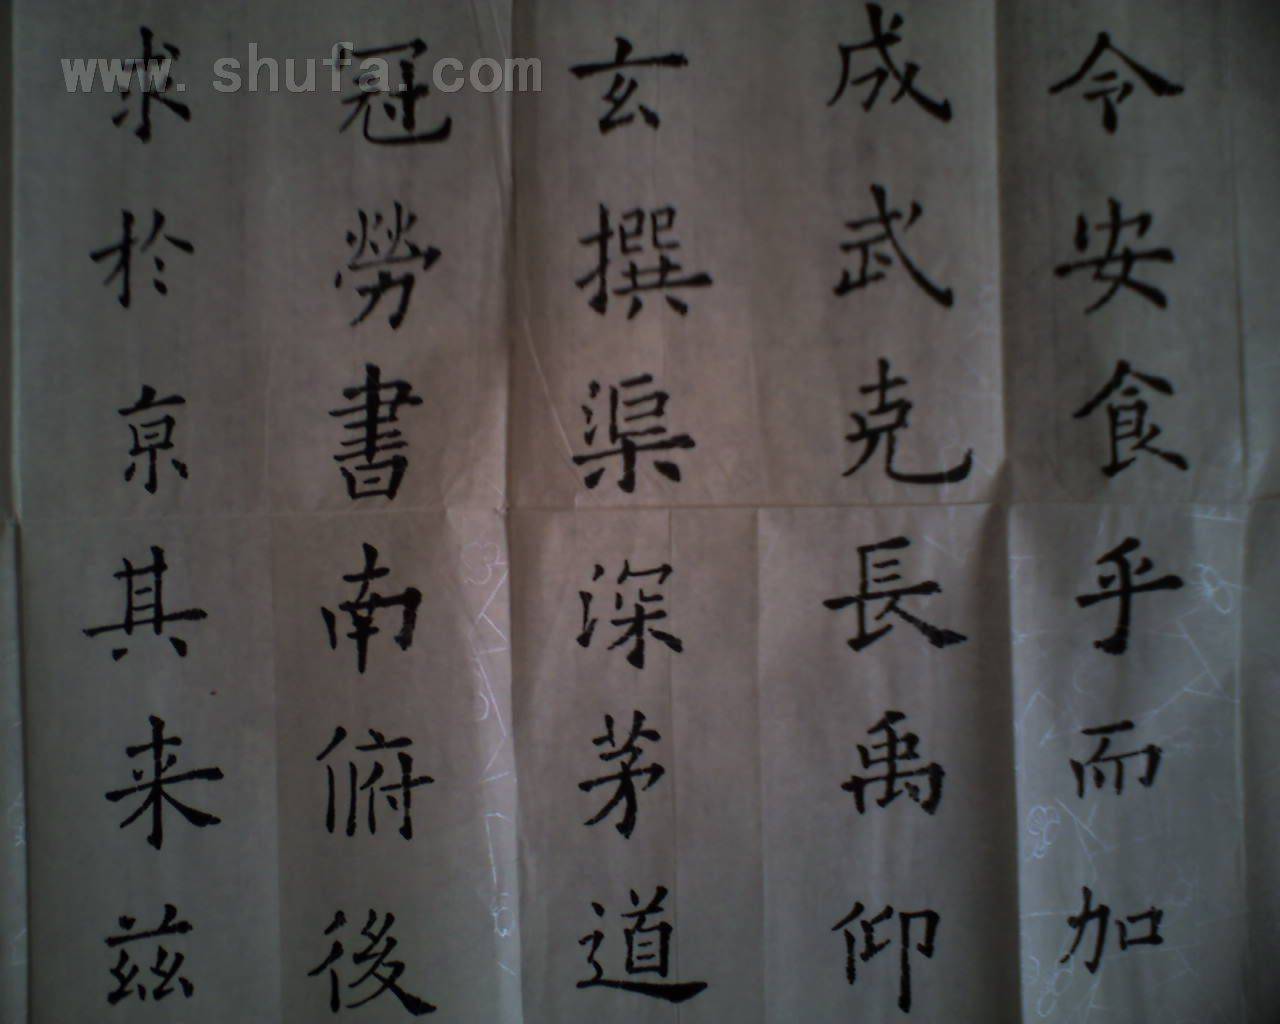 www.shufa.com
令安食乎而加
成武克長禹仰
玄撰渠深茅道
冠勞書南俯後
求於京其来茲